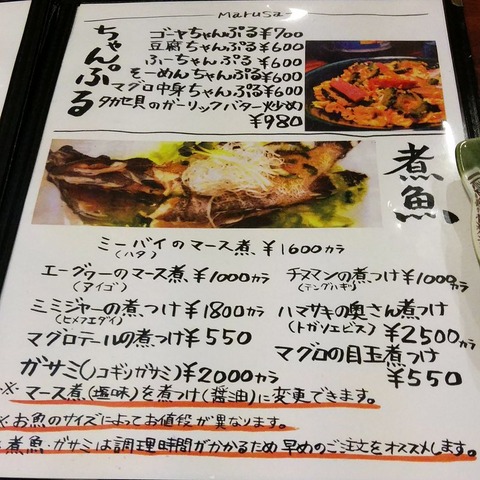 Marusa
ちゃんぷる
ゴーヤちゃんぷる¥700
豆腐ちゃんぷる¥600
ふーちゃんぷる¥600
そーめんちゃんぷる¥600
マグロ中身ちゃんぷる¥600
タカセ貝のガーリックバター炒め
¥980
煮魚
ミーバイのマース煮 ¥1600カラ
(ハタ)
エーグヮーのマース煮 ¥1000カラ
(アイゴ)
チヌマンの煮つけ¥1000カラ
(テングハギ)
ミミジャーの煮つけ¥1800カラ
(ヒメフエダイ)
ハマサキの奥さん煮つけ
(トガリエビス) ¥2500カラ
マグロテールの煮つけ¥550
マグロの目玉煮つけ
¥550
ガサミ(ノコギリガザミ)¥2000カラ
※マース煮(塩味)を煮つけ(醤油)に変更できます。
※お魚のサイズによってお値段が異なります。
煮魚・ガサミは調理時間がかかるため早めのご注文をオススメします。